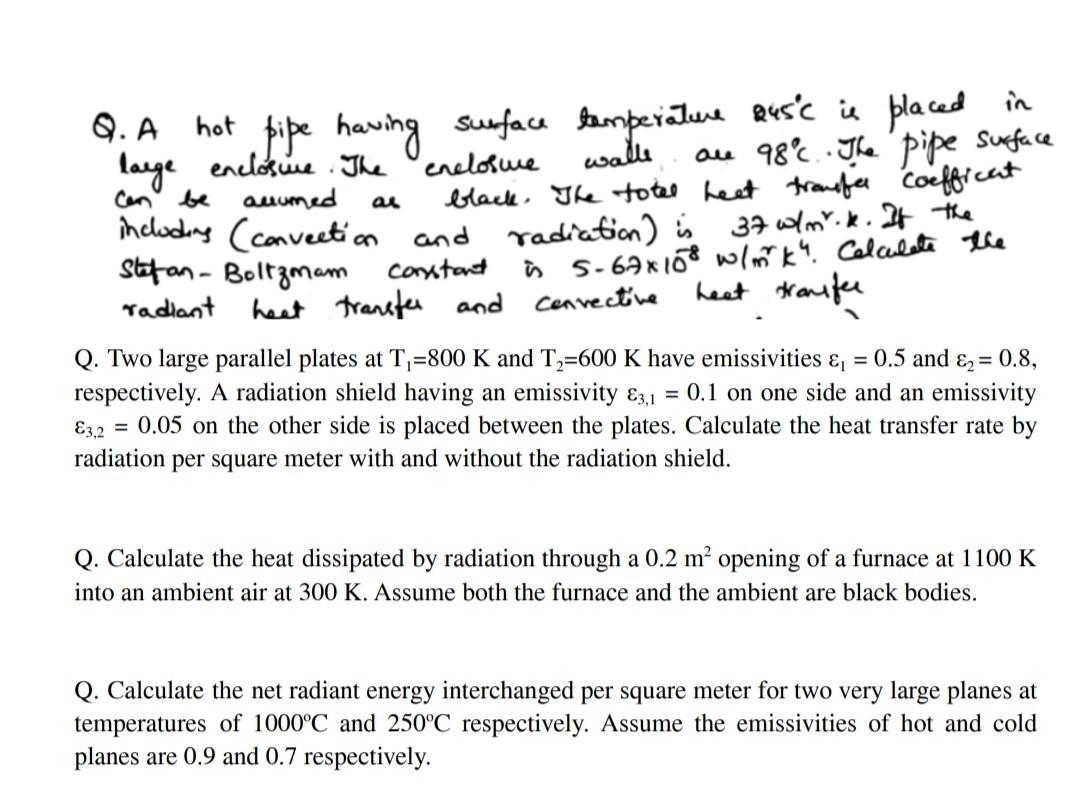 Q. A hot pipe having surface temperature 245°c is placed in
large enclosure. The enclosure walls are 98°c. The pipe surface
can be assumed as black. The total heat transfer coefficient
including (convection and radiation) is 37 w/m².k. If the
Stefan-Boltzmann constant is 5-67×10⁻⁸ w/m²k⁴. Calculate the
radiant heat transfer and convective heat transfer
Q. Two large parallel plates at T₁=800 K and T₂=600 K have emissivities ε₁ = 0.5 and ε₂ = 0.8,
respectively. A radiation shield having an emissivity ε₃,₁ = 0.1 on one side and an emissivity
ε₃,₂ = 0.05 on the other side is placed between the plates. Calculate the heat transfer rate by
radiation per square meter with and without the radiation shield.
Q. Calculate the heat dissipated by radiation through a 0.2 m² opening of a furnace at 1100 K
into an ambient air at 300 K. Assume both the furnace and the ambient are black bodies.
Q. Calculate the net radiant energy interchanged per square meter for two very large planes at
temperatures of 1000ºC and 250ºC respectively. Assume the emissivities of hot and cold
planes are 0.9 and 0.7 respectively.